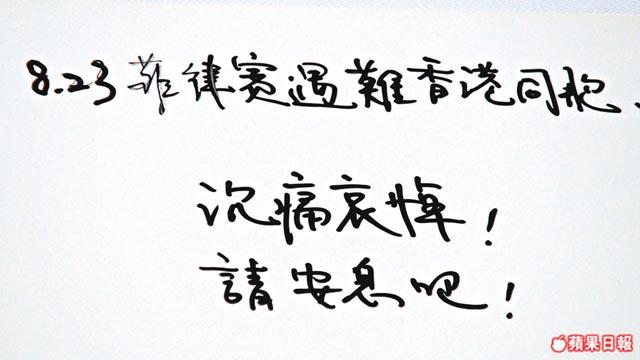 8.23菲律賓遇難香港同胞、
沉痛哀悼！
請安息吧！
蘋果日報